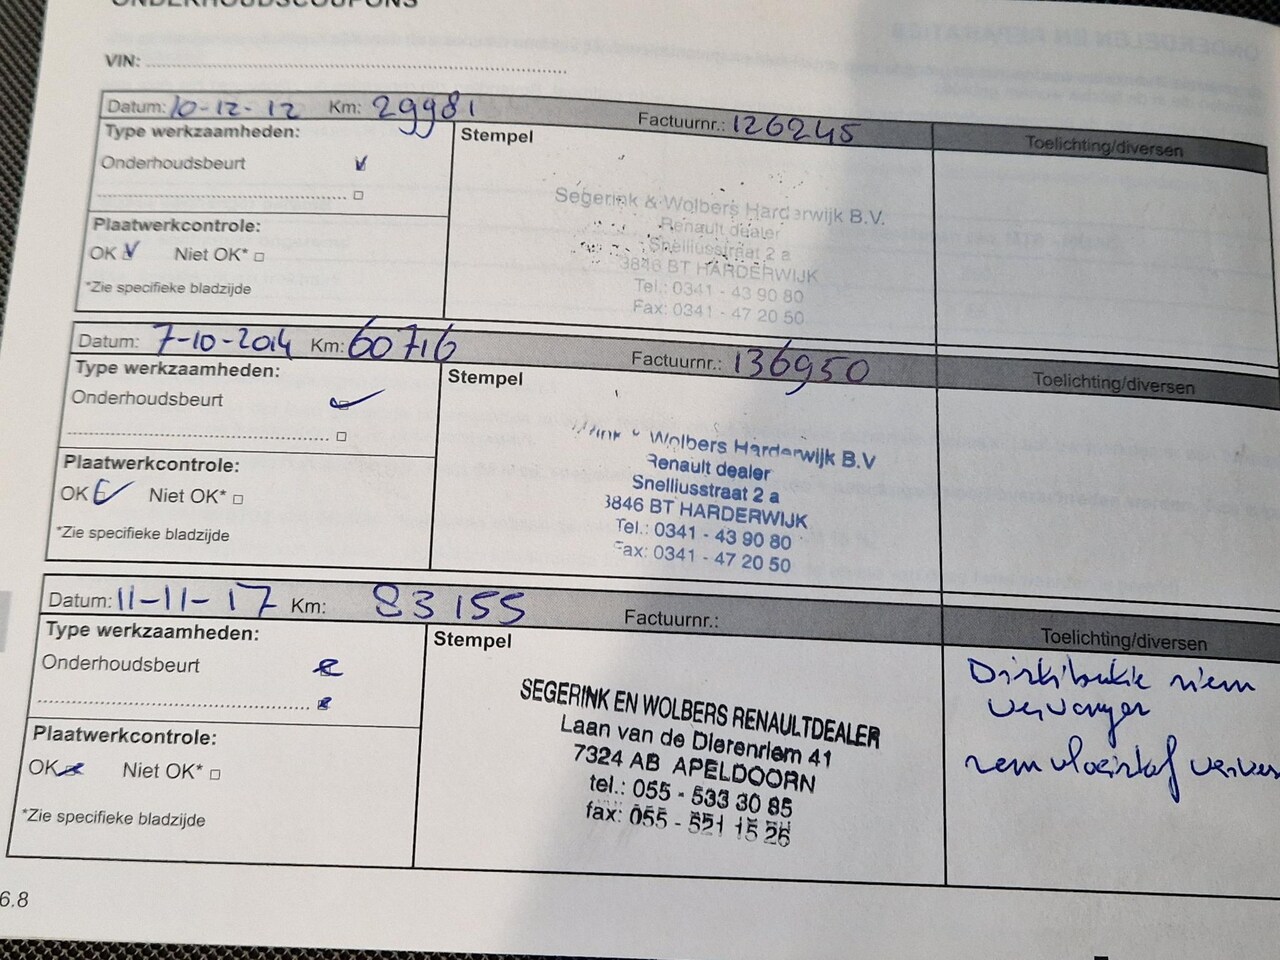 ONDERHOUDSCOUPONS
VIN:
Datum: 10-12-12 Km: 29981 Factuurnr.: 126245 Toelichting/diversen
Type werkzaamheden:
Stempel
Onderhoudsbeurt
Plaatwerkcontrole:
OK Niet OK*
*Zie specifieke bladzijde
Segerink & Wolbers Harderwijk B.V.
Renault dealer
Snelliusstraat 2 a
3846 BT HARDERWIJK
Tel.: 0341 - 43 90 80
Fax: 0341 - 47 20 50
Datum: 7-10-2014 Km: 60716 Factuurnr.: 136950 Toelichting/diversen
Type werkzaamheden:
Stempel
Onderhoudsbeurt
Plaatwerkcontrole:
OK Niet OK*
*Zie specifieke bladzijde
Wolbers Harderwijk B.V
Renault dealer
Snelliusstraat 2 a
3846 BT HARDERWIJK
Tel.: 0341 - 43 90 80
Fax: 0341 - 47 20 50
Datum: 11-11-17 Km: 83155 Factuurnr.: Toelichting/diversen
Type werkzaamheden:
Stempel
Onderhoudsbeurt
Plaatwerkcontrole:
OK Niet OK*
*Zie specifieke bladzijde
SEGERINK EN WOLBERS RENAULTDEALER
Laan van de Dierenriem 41
7324 AB APELDOORN
tel.: 055 - 533 30 85
fax: 055 - 521 15 26
Distributie riem
vervangen
remvloeistof
6.8